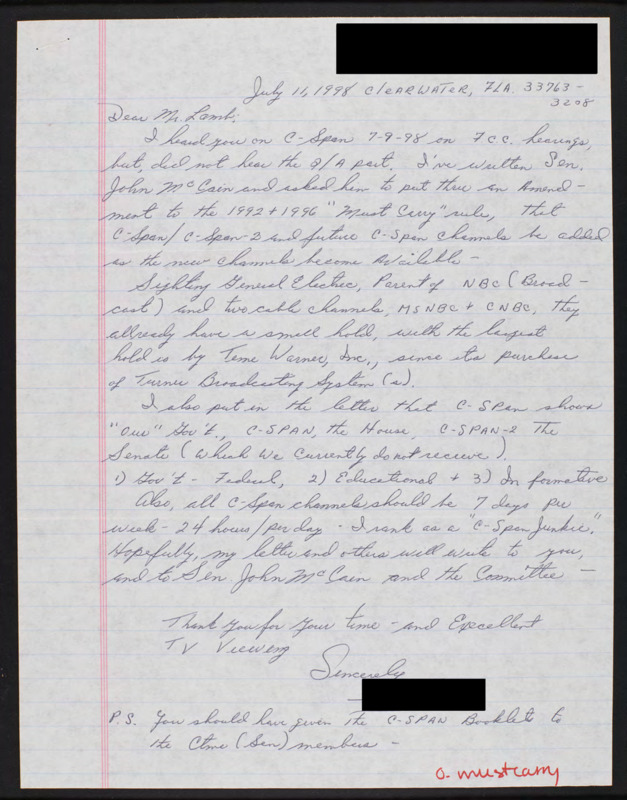 July 11, 1998 Clearwater, FLA. 33763-
3208
Dear Mr. Lamb,
I heard you on C-Span 7-9-98 on F.C.C. hearings,
but, did not hear the Q/A part. I've written Sen.
John McCain and asked him to put thru an Amend-
ment to the 1992 + 1996 "Must Carry" rule, that
C-Span / C-Span-2 and future C-Span channels be added
as the new channels become available -
Sighting General Electric, Parent of NBC (Broad-
cast) and two cable channels, MSNBC + CNBC, they
allready have a small hold, with the largest
hold is by Time Warner, Inc., since its purchase
of Turner Broadcasting System (s).
I also put in the letter that C-SPAN shows
"our" Gov't., C-SPAN, the House, C-SPAN-2 The
Senate (which we currently do not recieve).
1) Gov't - Federal, 2) Educational + 3) Informative
Also, all C-Span channels should be 7 days per
week - 24 hours/per day - I rank as a "C-Span Junkie".
Hopefully, my letter and others will write to you,
and to Sen. John McCain and the Committee -
Thank you for your time - and Excellent
TV Viewing
Sincerely
P.S. You should have given the C-SPAN Booklets to
the Ctme (Sen) members -
O. mustcarry